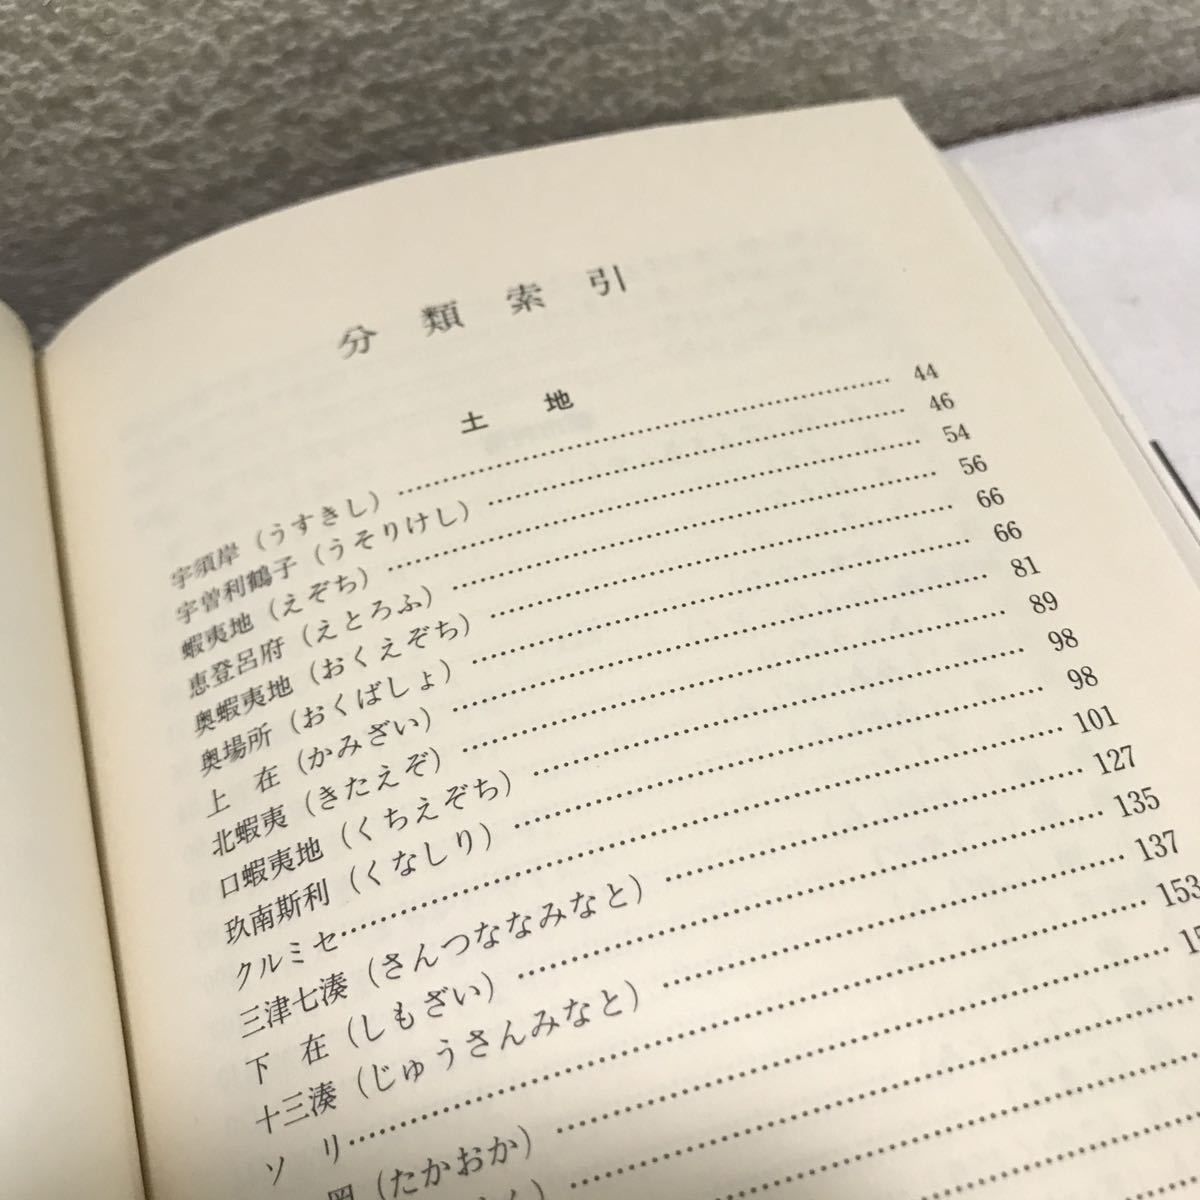 分類索引
土地
宇須岸（うすきし）…… 44
宇曽利鶴子（うそりけし）…… 46
蝦夷地（えぞち）…… 54
恵登呂府（えとろふ）…… 56
奥蝦夷地（おくえぞち）…… 66
奥場所（おくばしょ）…… 66
上在（かみざい）…… 81
北蝦夷（きたえぞ）…… 89
口蝦夷地（くちえぞち）…… 98
玖南斯利（くなしり）…… 98
クルミセ…… 101
三津七湊（さんつななみなと）…… 127
下在（しもざい）…… 135
十三湊（じゅうさんみなと）…… 137
ソリ…… 153
岡（たかおか）